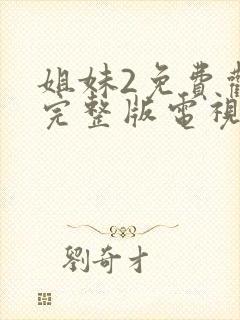 姐妹2免費
完整版電視
劉奇才